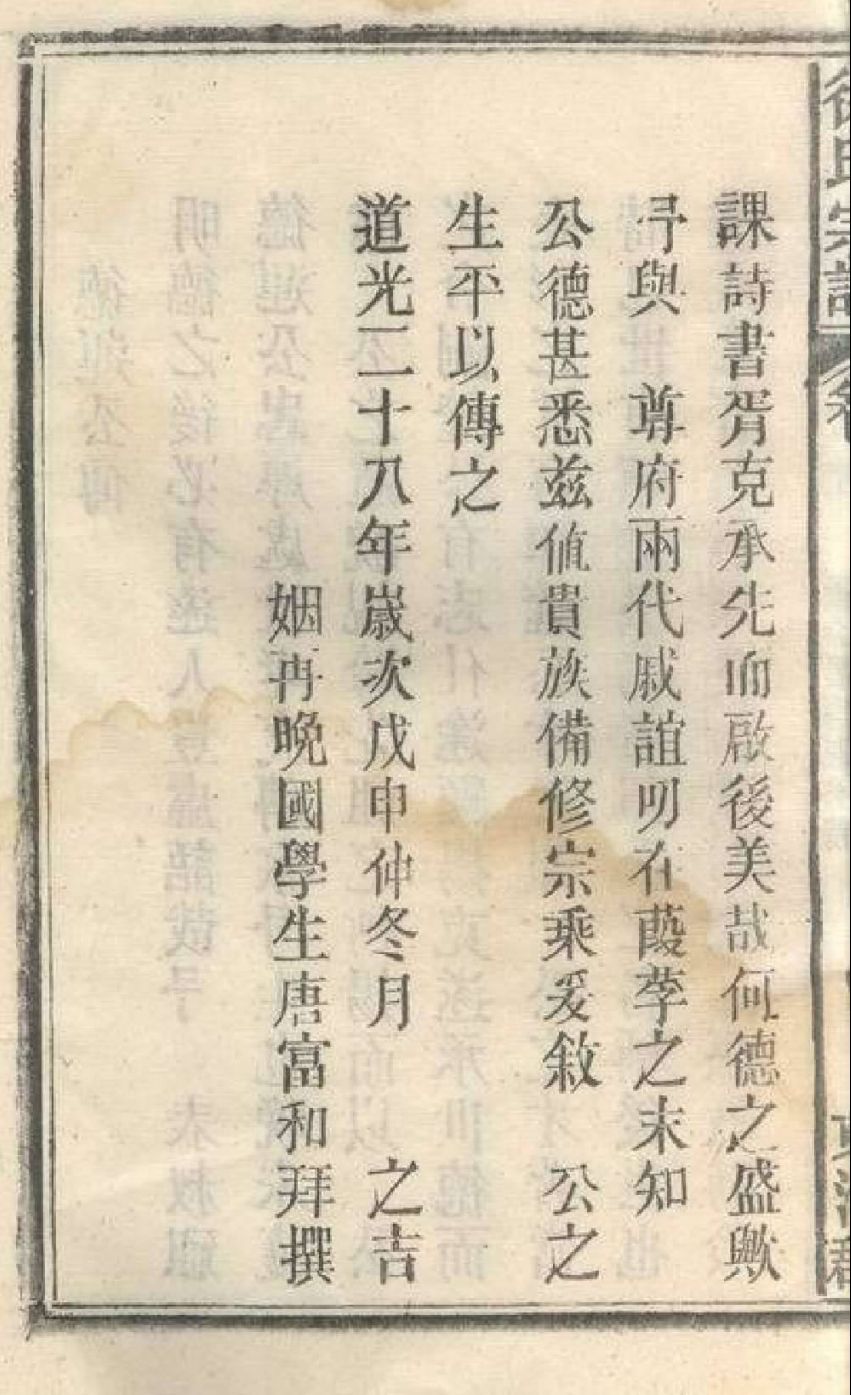 徐氏宗譜 卷
東海郡
課詩書胥克承先而啟後美哉何德之盛歟
予與　尊府兩代戚誼叨在葭莩之末知
公德甚悉茲値貴族備修宗乘爰敘　公之
生平以傳之
道光二十八年歲次戊申仲冬月　之吉
姻再晚國學生唐富和拜撰